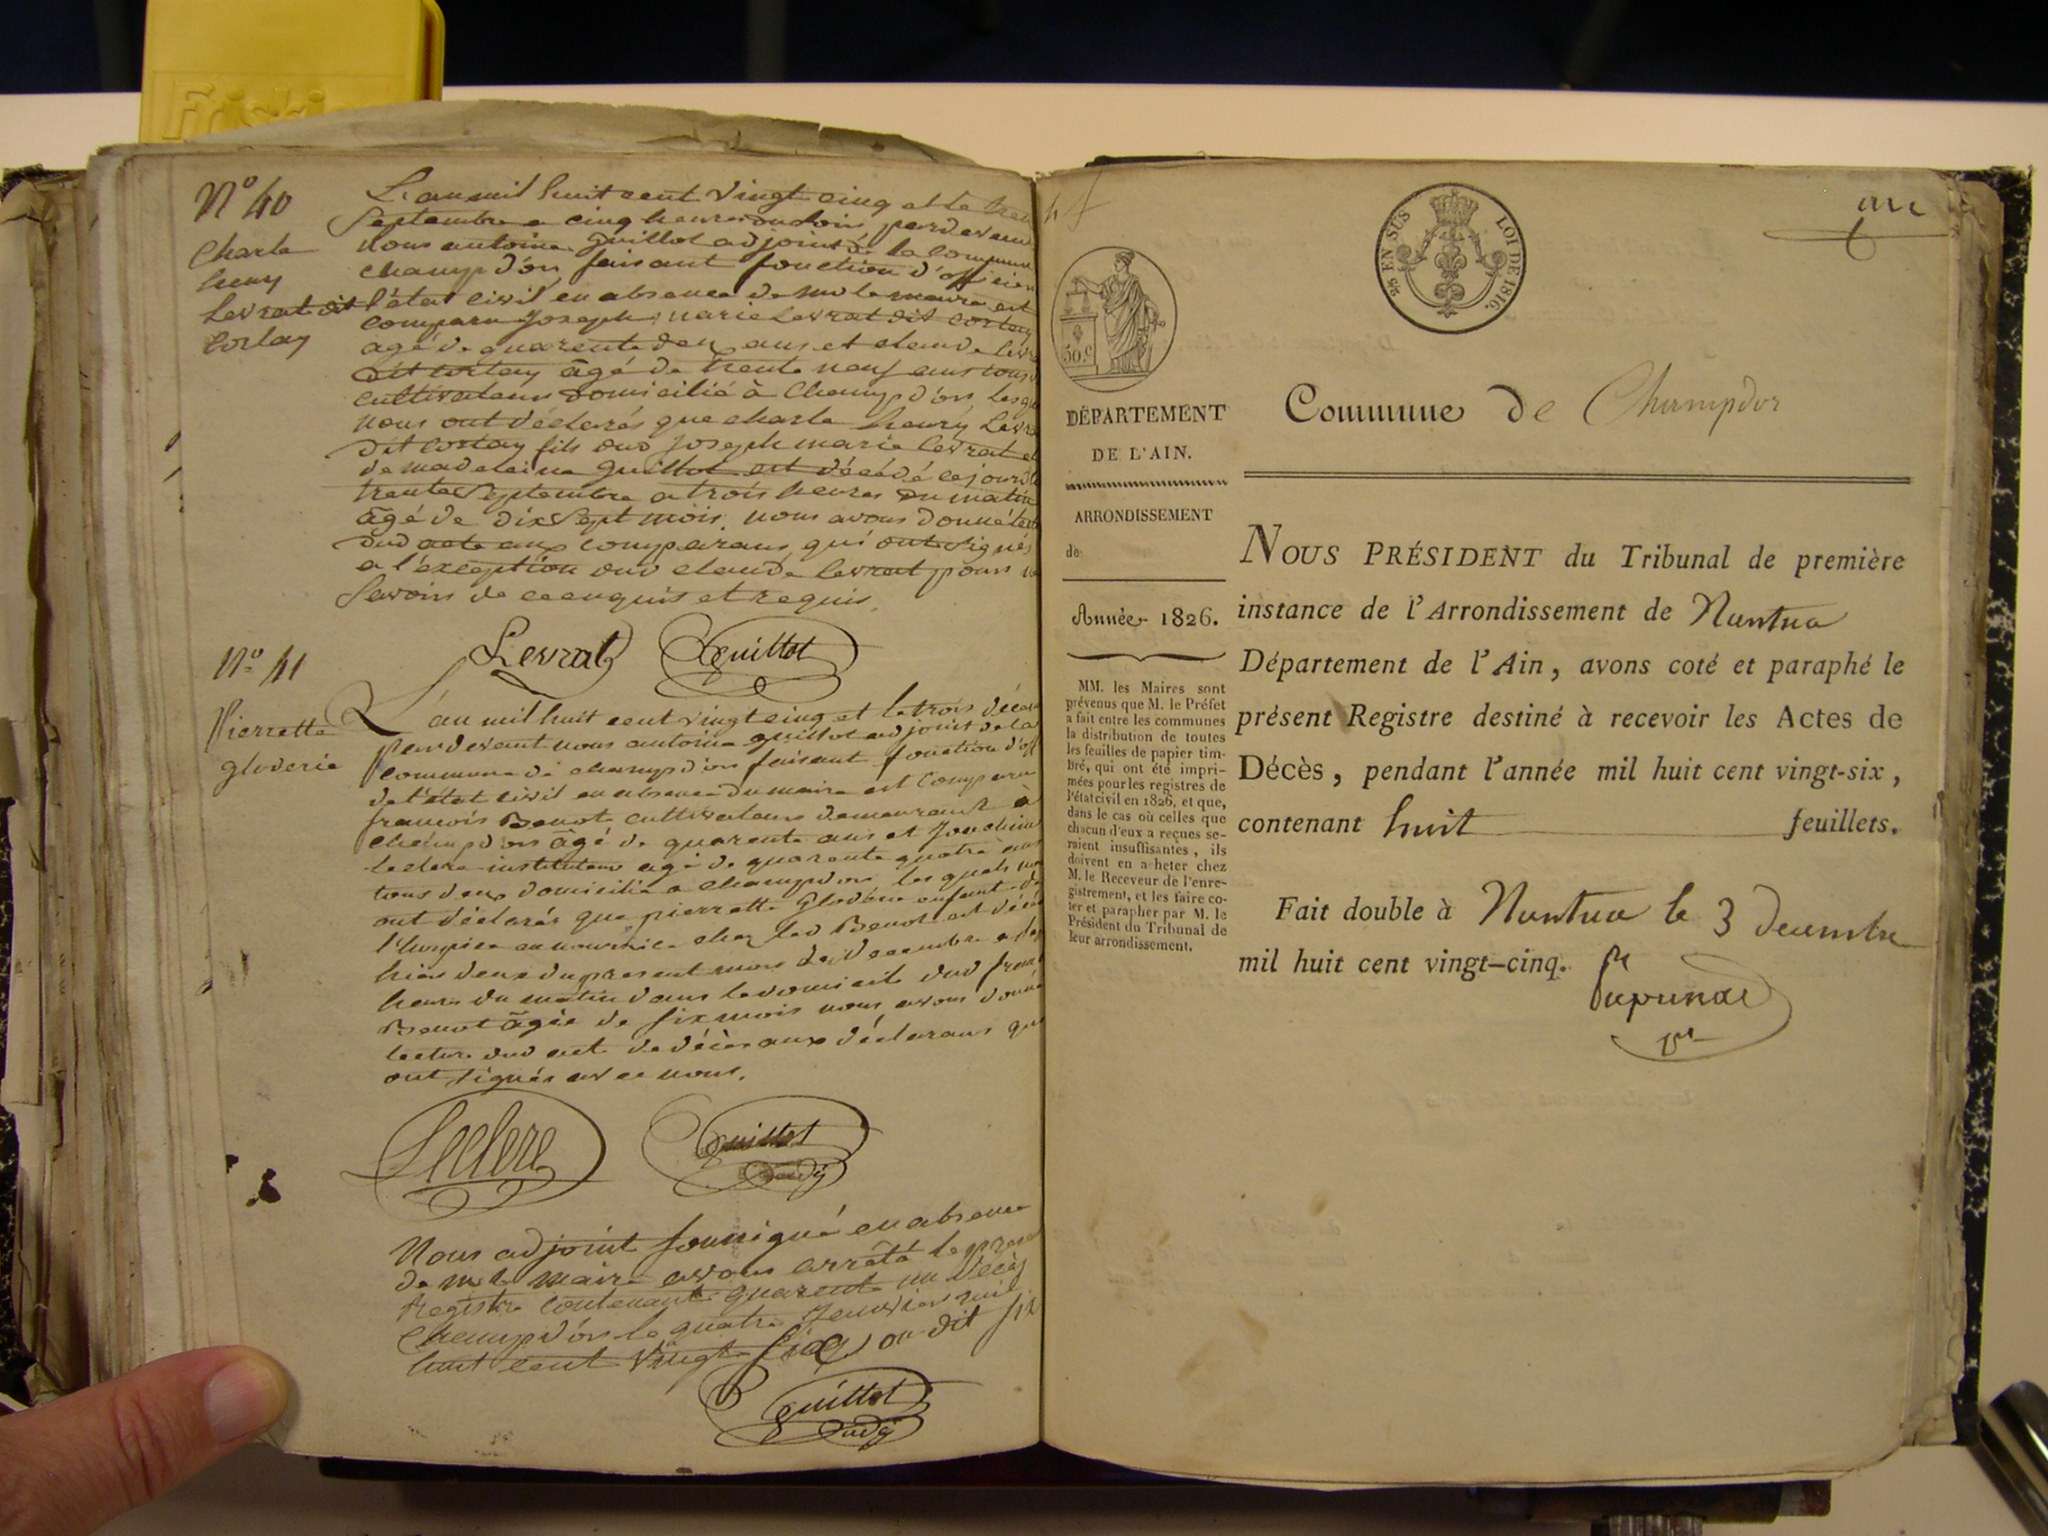 Friskie
N° 40
Charle
henry
Levrat dit
Corlay
L'an mil huit cent vingt cinq et le tren
Septembre a cinq heures du soir pardevant
nous antoine Guillot adjoint de la commune
champd'or faisant fonction d'officier
l'état civil en absence de mr le maire est
comparu joseph marie Levrat dit corlay
agé de quarente deux ans et claude levra
dit corlay âgé de trente neuf ans tous
cultivateurs domicilié à Champd'or lesq
nous ont déclarés que charle henry Levra
dit corlay fils dud joseph marie levrat et
de madelaine Guillot est décédé cejourd'
trente Septembre a trois heures du matin
âgé de dix Sept mois. nous avons donné
dud acte aux comparans qui ont signés
a l'exception dud claude levrat pour ne
Savoir de ce enquis et requis.
Levrat Guillot
N° 41
Pierrette
gloderie
L'an mil huit cent vingt cinq et le trois décem
pardevant nous antoine guillot adjoint de la
commune de champd'or faisant fonction d'off
de l'état civil en absence du maire est comparu
francois Benot cultivateur demeurant à
champd'or âgé de quarente ans et Joachim
leclerc instituteur agé de quarente quatre ans
tous deux domicilié a champdor les quels nous
ont déclarés que pierrette Glodérie enfant de
l'hospice en nourrice chez led Benot est décé
hier deux du present mois de Decembre a
heures du matin dans le domicile dud fran
Benot âgée de six mois nous avons donné
lecture dud acte de décès aux déclarans qui
ont signés avec nous.
Leclerc Guillot
adj
Nous adjoint soussigné en absence
de mr le maire avons arrêté le prese
Registre contenant quarente un Décès
Champd'or le quatre Janvier mil
huit cent vingt six ou dit six
Guillot
adj
un
25 EN SUS LOI DE 1816.
50 c
DÉPARTEMENT
DE L'AIN.
ARRONDISSEMENT
de
Année 1826.
MM. les Maires sont
prévenus que M. le Préfet
a fait entre les communes
la distribution de toutes
les feuilles de papier tim-
bré, qui ont été impri-
mées pour les registres de
l'état civil en 1826, et que,
dans le cas où celles que
chacun d'eux a reçues se-
raient insuffisantes, ils
doivent en acheter chez
M. le Receveur de l'enre-
gistrement, et les faire co-
ter et parapher par M. le
Président du Tribunal de
leur arrondissement.
Commune de Champdor
NOUS PRÉSIDENT du Tribunal de première
instance de l'Arrondissement de Nantua
Département de l'Ain, avons coté et paraphé le
présent Registre destiné à recevoir les Actes de
Décès, pendant l'année mil huit cent vingt-six,
contenant huit feuillets.
Fait double à Nantua le 3 decembre
mil huit cent vingt-cinq.